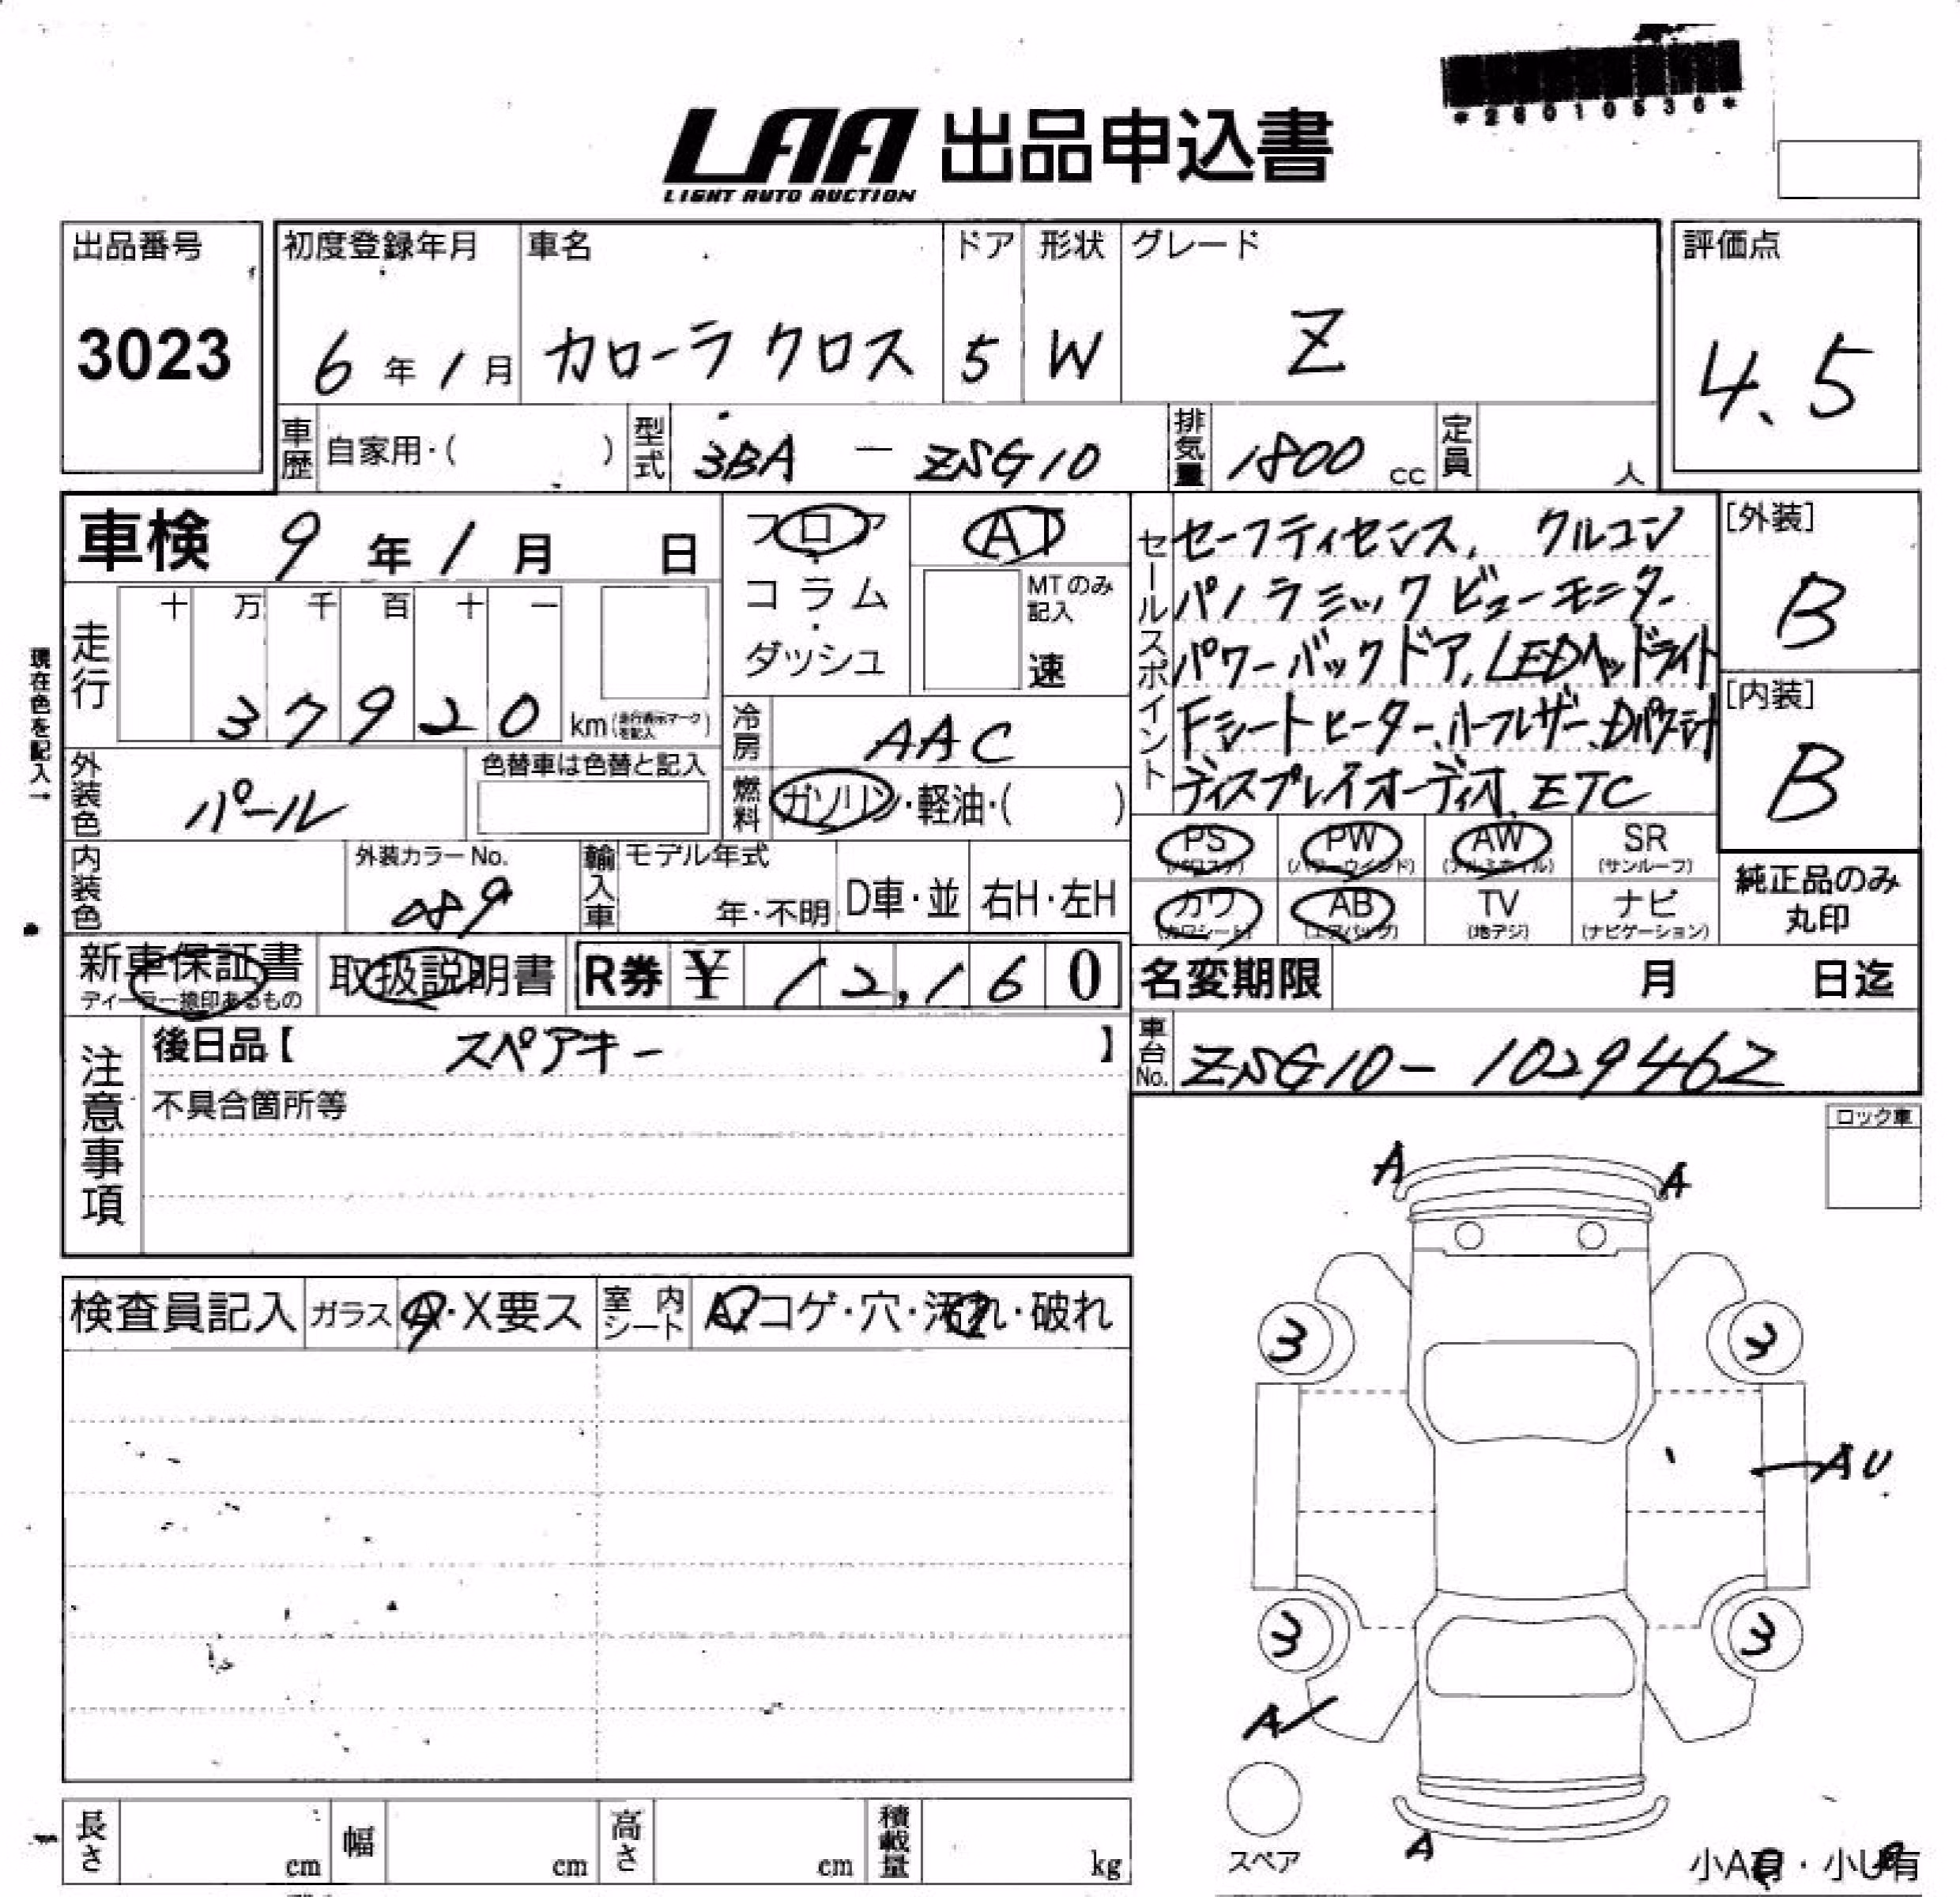 *26010536*
LAA 出品申込書
LIGHT AUTO AUCTION
出品番号
3023
初度登録年月
6年1月
車名
カローラ クロス
ドア
5
形状
W
グレード
Z
評価点
4.5
車歴 自家用・( )
型式 3BA - ZSG10
排気量 1800 cc
定員 人
車検 9年1月 日
現在色を記入→
走行 十 万 千 百 十 一
37920 km(走行表示マークを記入)
フロア・コラム・ダッシュ
AT
MTのみ記入
速
冷房 AAC
燃料 ガソリン・軽油・( )
外装色 パール
色替車は色替と記入
内装色
外装カラーNo.
089
輸入車 モデル年式
年・不明
D車・並
右H・左H
セールスポイント
セーフティセンス, クルコン
パノラミックビューモニター
パワーバックドア, LEDヘッドライト
Fシートヒーター、ハーフレザー、Dパワーシート
ディスプレイオーディオ, ETC
[外装]
B
[内装]
B
PS (パワステ)
PW (パワーウインド)
AW (アルミホイル)
SR (サンルーフ)
カワ (カワシート)
AB (エアバッグ)
TV (地デジ)
ナビ (ナビゲーション)
純正品のみ丸印
新車保証書
ディーラー捺印あるもの
取扱説明書
R券 ¥12,160
名変期限 月 日迄
車台No. ZSG10-1029462
注意事項
後日品【 スペアキー 】
不具合箇所等
ロック車
検査員記入
ガラス A・X要ス
室内シート A・コゲ・穴・汚れ・破れ
A A
3 3
AU
3 3
A
スペア
A
小A有・小U有
長さ cm
幅 cm
高さ cm
積載量 kg